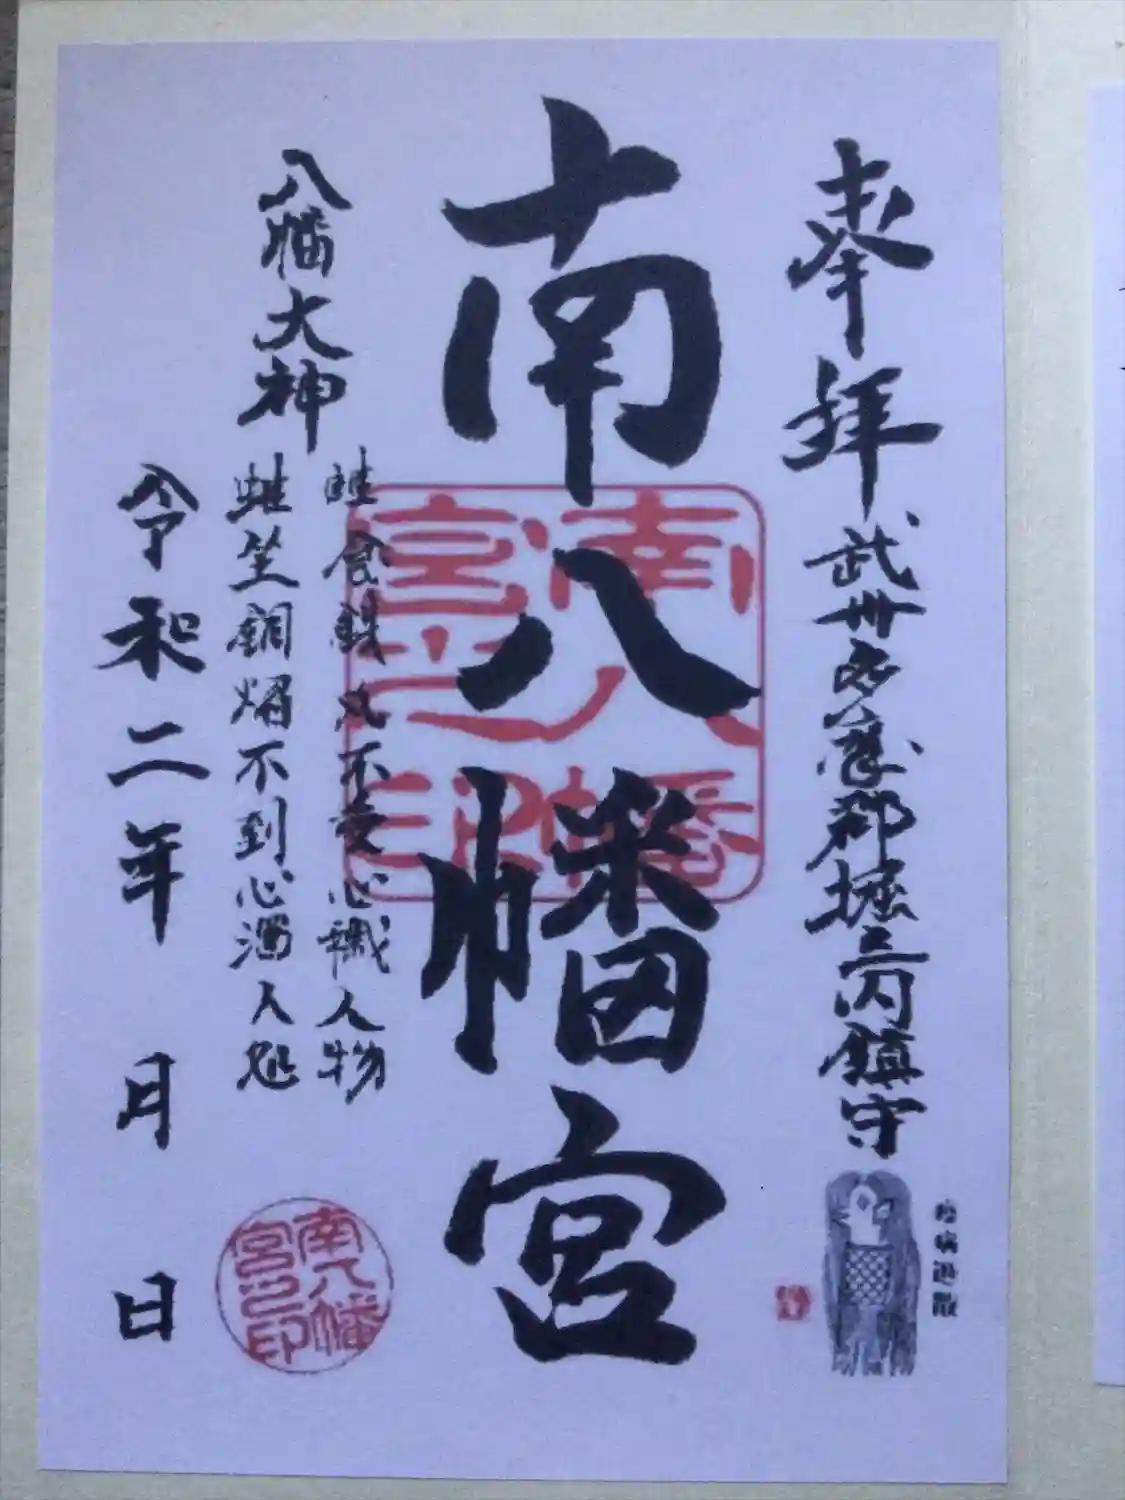 疫病退散
奉拝 武州多摩郡堀之内鎮守
南八幡宮
南八幡宮之印
八幡大神
雖食鉄丸不受心穢人物
雖坐銅焔不到心濁人処
令和二年 月 日
南八幡宮之印